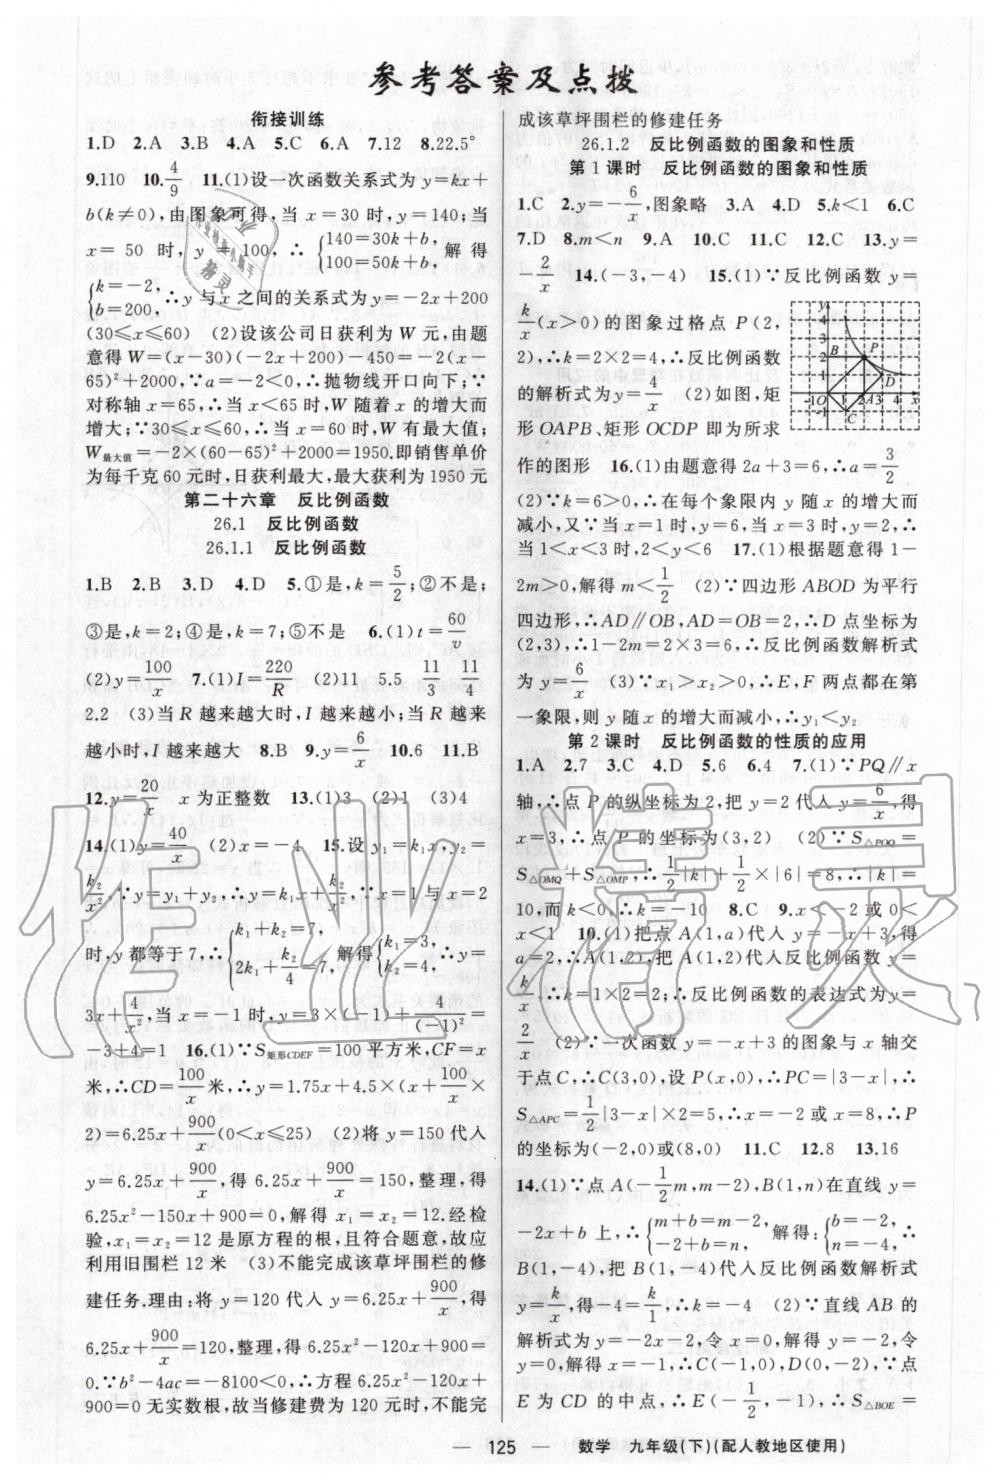 参考答案及点拨
衔接训练
1.D 2.A 3.B 4.A 5.C 6.A 7.12 8.22.5°
9.110 10.4/9 11.(1)设一次函数关系式为 y=kx+
b(k≠0),由图象可得,当 x=30 时,y=140;当
x=50 时,y=100,∴{140=30k+b, 100=50k+b, 解得
{k=-2, b=200, ∴y 与 x 之间的关系式为 y=-2x+200
(30≤x≤60) (2)设该公司日获利为 W 元,由题
意得 W=(x-30)(-2x+200)-450=-2(x-
65)²+2000,∵a=-2<0;∴抛物线开口向下;∵
对称轴 x=65,∴当 x<65 时,W 随着 x 的增大而
增大;∵30≤x≤60,∴当 x=60 时,W 有最大值;
W最大值=-2×(60-65)²+2000=1950.即销售单价
为每千克 60 元时,日获利最大,最大获利为 1950 元
第二十六章 反比例函数
26.1 反比例函数
26.1.1 反比例函数
1.B 2.B 3.D 4.D 5.①是,k=5/2;②不是;
③是,k=2;④是,k=7;⑤不是 6.(1)t=60/v
(2)y=100/x 7.(1)I=220/R (2)11 5.5 11/3 11/4
2.2 (3)当 R 越来越大时,I 越来越小;当 R 越来
越小时,I 越来越大 8.B 9.y=6/x 10.6 11.B
12.y=20/x x 为正整数 13.(1)3 (2)1 (3)4
14.(1)y=40/x (2)x=-4 15.设 y₁=k₁x,y₂=
k₂/x²,∵y=y₁+y₂,∴y=k₁x+k₂/x².∵x=1 与 x=2
时,y 都等于 7,∴{k₁+k₂=7, 2k₁+k₂/4=7, 解得{k₁=3, k₂=4, ∴y=
3x+4/x²,当 x=-1 时,y=3×(-1)+4/(-1)²=
-3+4=1 16.(1)∵S矩形CDEF=100 平方米,CF=x
米,∴CD=100/x米,∴y=1.75x+4.5×(x+100/x×
2)=6.25x+900/x(0<x≤25) (2)将 y=150 代入
y=6.25x+900/x,得 6.25x+900/x=150,整理,得
6.25x²-150x+900=0,解得 x₁=x₂=12.经检
验,x₁=x₂=12 是原方程的根,且符合题意,故应
利用旧围栏 12 米 (3)不能完成该草坪围栏的修
建任务.理由:将 y=120 代入 y=6.25x+900/x,得
6.25x+900/x=120,整理,得 6.25x²-120x+900=
0.∵b²-4ac=-8100<0,∴方程 6.25x²-120x+
900=0 无实数根,故当修建费为 120 元时,不能完
成该草坪围栏的修建任务
26.1.2 反比例函数的图象和性质
第 1 课时 反比例函数的图象和性质
1.C 2.y=-6/x,图象略 3.A 4.D 5.k<1 6.C
7.D 8.m<n 9.A 10.C 11.C 12.C 13.y=
-2/x 14.(-3,-4) 15.(1)∵反比例函数 y=
k/x(x>0)的图象过格点 P(2,
2),∴k=2×2=4,∴反比例函数
的解析式为 y=4/x (2)如图,矩
形 OAPB、矩形 OCDP 即为所求
作的图形 16.(1)由题意得 2a+3=6,∴a=3/2
(2)∵k=6>0,∴在每个象限内 y 随 x 的增大而
减小,又∵当 x=1 时,y=6,当 x=3 时,y=2,∴
当 1<x<3 时,2<y<6 17.(1)根据题意得 1-
2m>0,解得 m<1/2 (2)∵四边形 ABOD 为平行
四边形,∴AD∥OB,AD=OB=2,∴D 点坐标为
(2,3),∴1-2m=2×3=6,∴反比例函数解析式
为 y=6/x (3)∵x₁>x₂>0,∴E,F 两点都在第
一象限,则 y 随 x 的增大而减小,∴y₁<y₂
第 2 课时 反比例函数的性质的应用
1.A 2.7 3.C 4.D 5.6 6.4 7.(1)∵PQ∥x
轴,∴点 P 的纵坐标为 2,把 y=2 代入 y=6/x,得
x=3,∴点 P 的坐标为(3,2) (2)∵S△POQ=
S△OMQ+S△OMP,∴1/2|k|+1/2×|6|=8,∴|k|=
10,而 k<0,∴k=-10 8.C 9.x<-2 或 0<
x<1 10.(1)把点 A(1,a)代入 y=-x+3,得
a=2,∴A(1,2),把 A(1,2)代入反比例函数 y=
k/x,∴k=1×2=2;∴反比例函数的表达式为 y=
2/x (2)∵一次函数 y=-x+3 的图象与 x 轴交
于点 C,∴C(3,0),设 P(x,0),∴PC=|3-x|,∴
S△APC=1/2|3-x|×2=5,∴x=-2 或 x=8,∴P
的坐标为(-2,0)或(8,0) 11.C 12.8 13.16
14.(1)∵点 A(-1/2m,m-2),B(1,n)在直线 y=
-2x+b 上,∴{m+b=m-2, -2+b=n, 解得:{b=-2, n=-4, ∴
B(1,-4),把 B(1,-4)代入反比例函数解析式
y=k/x,得-4=k/1,∴k=-4 (2)∵直线 AB 的
解析式为 y=-2x-2,令 x=0,解得 y=-2,令
y=0,解得 x=-1,∴C(-1,0),D(0,-2).∵点
E 为 CD 的中点,∴E(-1/2,-1),∴S△BOE=
y
4
3
2
1
-1O 1 2 3 4 x
-1
B P D A C
— 125 — 数学 九年级(下)(配人教地区使用)
作业精灵